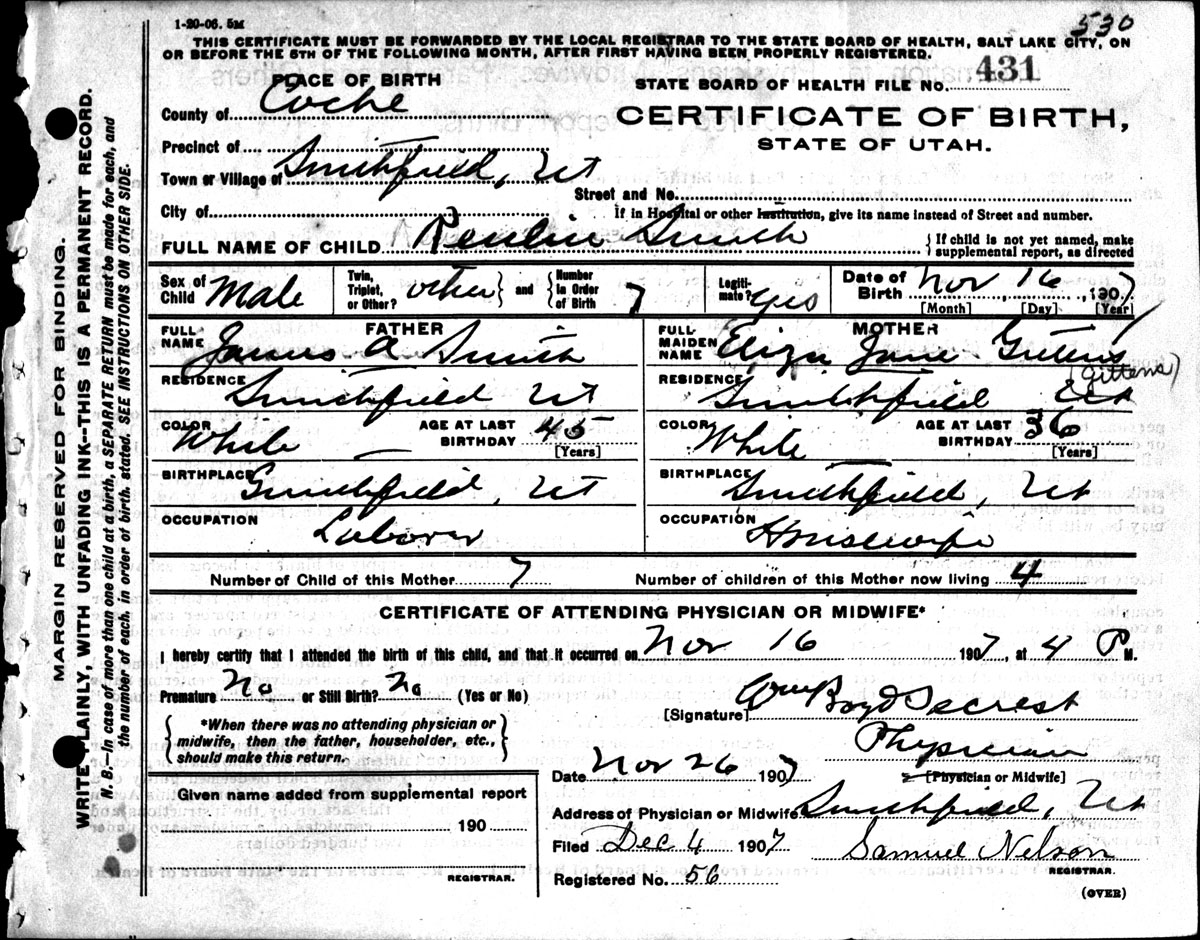 1-20-06. 5M
530
THIS CERTIFICATE MUST BE FORWARDED BY THE LOCAL REGISTRAR TO THE STATE BOARD OF HEALTH, SALT LAKE CITY, ON
OR BEFORE THE 5TH OF THE FOLLOWING MONTH, AFTER FIRST HAVING BEEN PROPERLY REGISTERED.
PLACE OF BIRTH
STATE BOARD OF HEALTH FILE NO. 431
County of Cache
CERTIFICATE OF BIRTH,
STATE OF UTAH.
Precinct of
Town or Village of Smithfield, Ut
Street and No.
City of
If in Hospital or other Institution, give its name instead of Street and number.
FULL NAME OF CHILD Smith
{ If child is not yet named, make
supplemental report, as directed
Sex of Child Male
Twin, Triplet, or Other? other } and { Number In Order of Birth 7
Legitimate? Yes
Date of Birth Nov 16, 1907
[Month] [Day] [Year]
FATHER
FULL NAME James A Smith
MOTHER
FULL MAIDEN NAME Eliza Jane Gittens
(Gittens)
RESIDENCE Smithfield Ut
RESIDENCE Smithfield Ut
COLOR White
AGE AT LAST BIRTHDAY 45
[Years]
COLOR White
AGE AT LAST BIRTHDAY 36
[Years]
BIRTHPLACE Smithfield, Ut
BIRTHPLACE Smithfield, Ut
OCCUPATION Laborer
OCCUPATION Housewife
Number of Child of this Mother 7
Number of children of this Mother now living 4
CERTIFICATE OF ATTENDING PHYSICIAN OR MIDWIFE*
I hereby certify that I attended the birth of this child, and that it occurred on Nov 16 1907, at 4 P M.
Premature No or Still Birth? No (Yes or No)
{ *When there was no attending physician or
midwife, then the father, householder, etc.,
should make this return. }
[Signature] Wm Boyd Secrest
Physician
[Physician or Midwife]
Date Nov 26 1907
Given name added from supplemental report
190
REGISTRAR.
Address of Physician or Midwife Smithfield, Ut
Filed Dec 4 1907
Samuel Nelson
REGISTRAR.
Registered No. 56
(OVER)
MARGIN RESERVED FOR BINDING.
WRITE PLAINLY, WITH UNFADING INK--THIS IS A PERMANENT RECORD.
N. B.—In case of more than one child at a birth, a SEPARATE RETURN must be made for each, and
the number of each, in order of birth, stated. SEE INSTRUCTIONS ON OTHER SIDE.